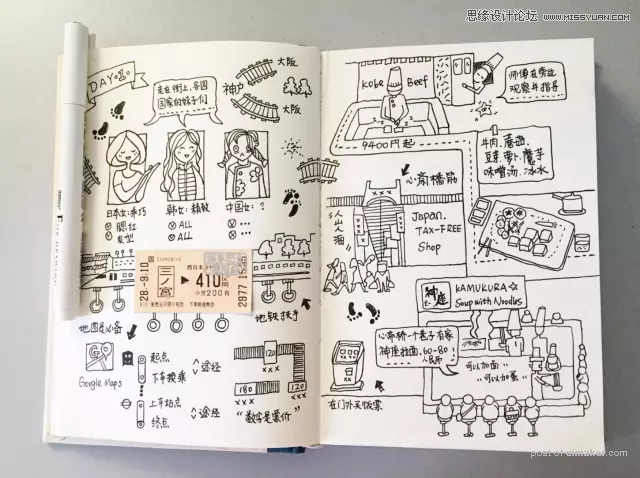 思缘设计论坛
WWW.MISSYUAN.COM
DAY
走在街上，各国
国家的妹子们
神户
大阪
大阪
日本女：乖巧
腮红
发型
韩女：精致
ALL
ALL
中国女：？
...
...
999
28.-9.10
三ノ宮
西日本
410円
小児200円
2977
地铁扶手
地图是必备
Google Maps
起点
下车换乘
途经
上车站点
终点
途经
120
180
120
×××
"数字是票价"
Kobe Beef
师傅在旁边
观察并指导
9400円起
牛肉、蘑菇、
豆菜、萝卜、魔芋
味噌汤、冰水
心斋橋筋
人山人海
Japan.
TAX-FREE
Shop
神座
KAMUKURA☆
Soup with Noodles
心斋桥一个巷子有家
神座拉面，60-80
人民币
"可以加面"
"可以加蛋"
在门外买饭票
post of uimaker.com